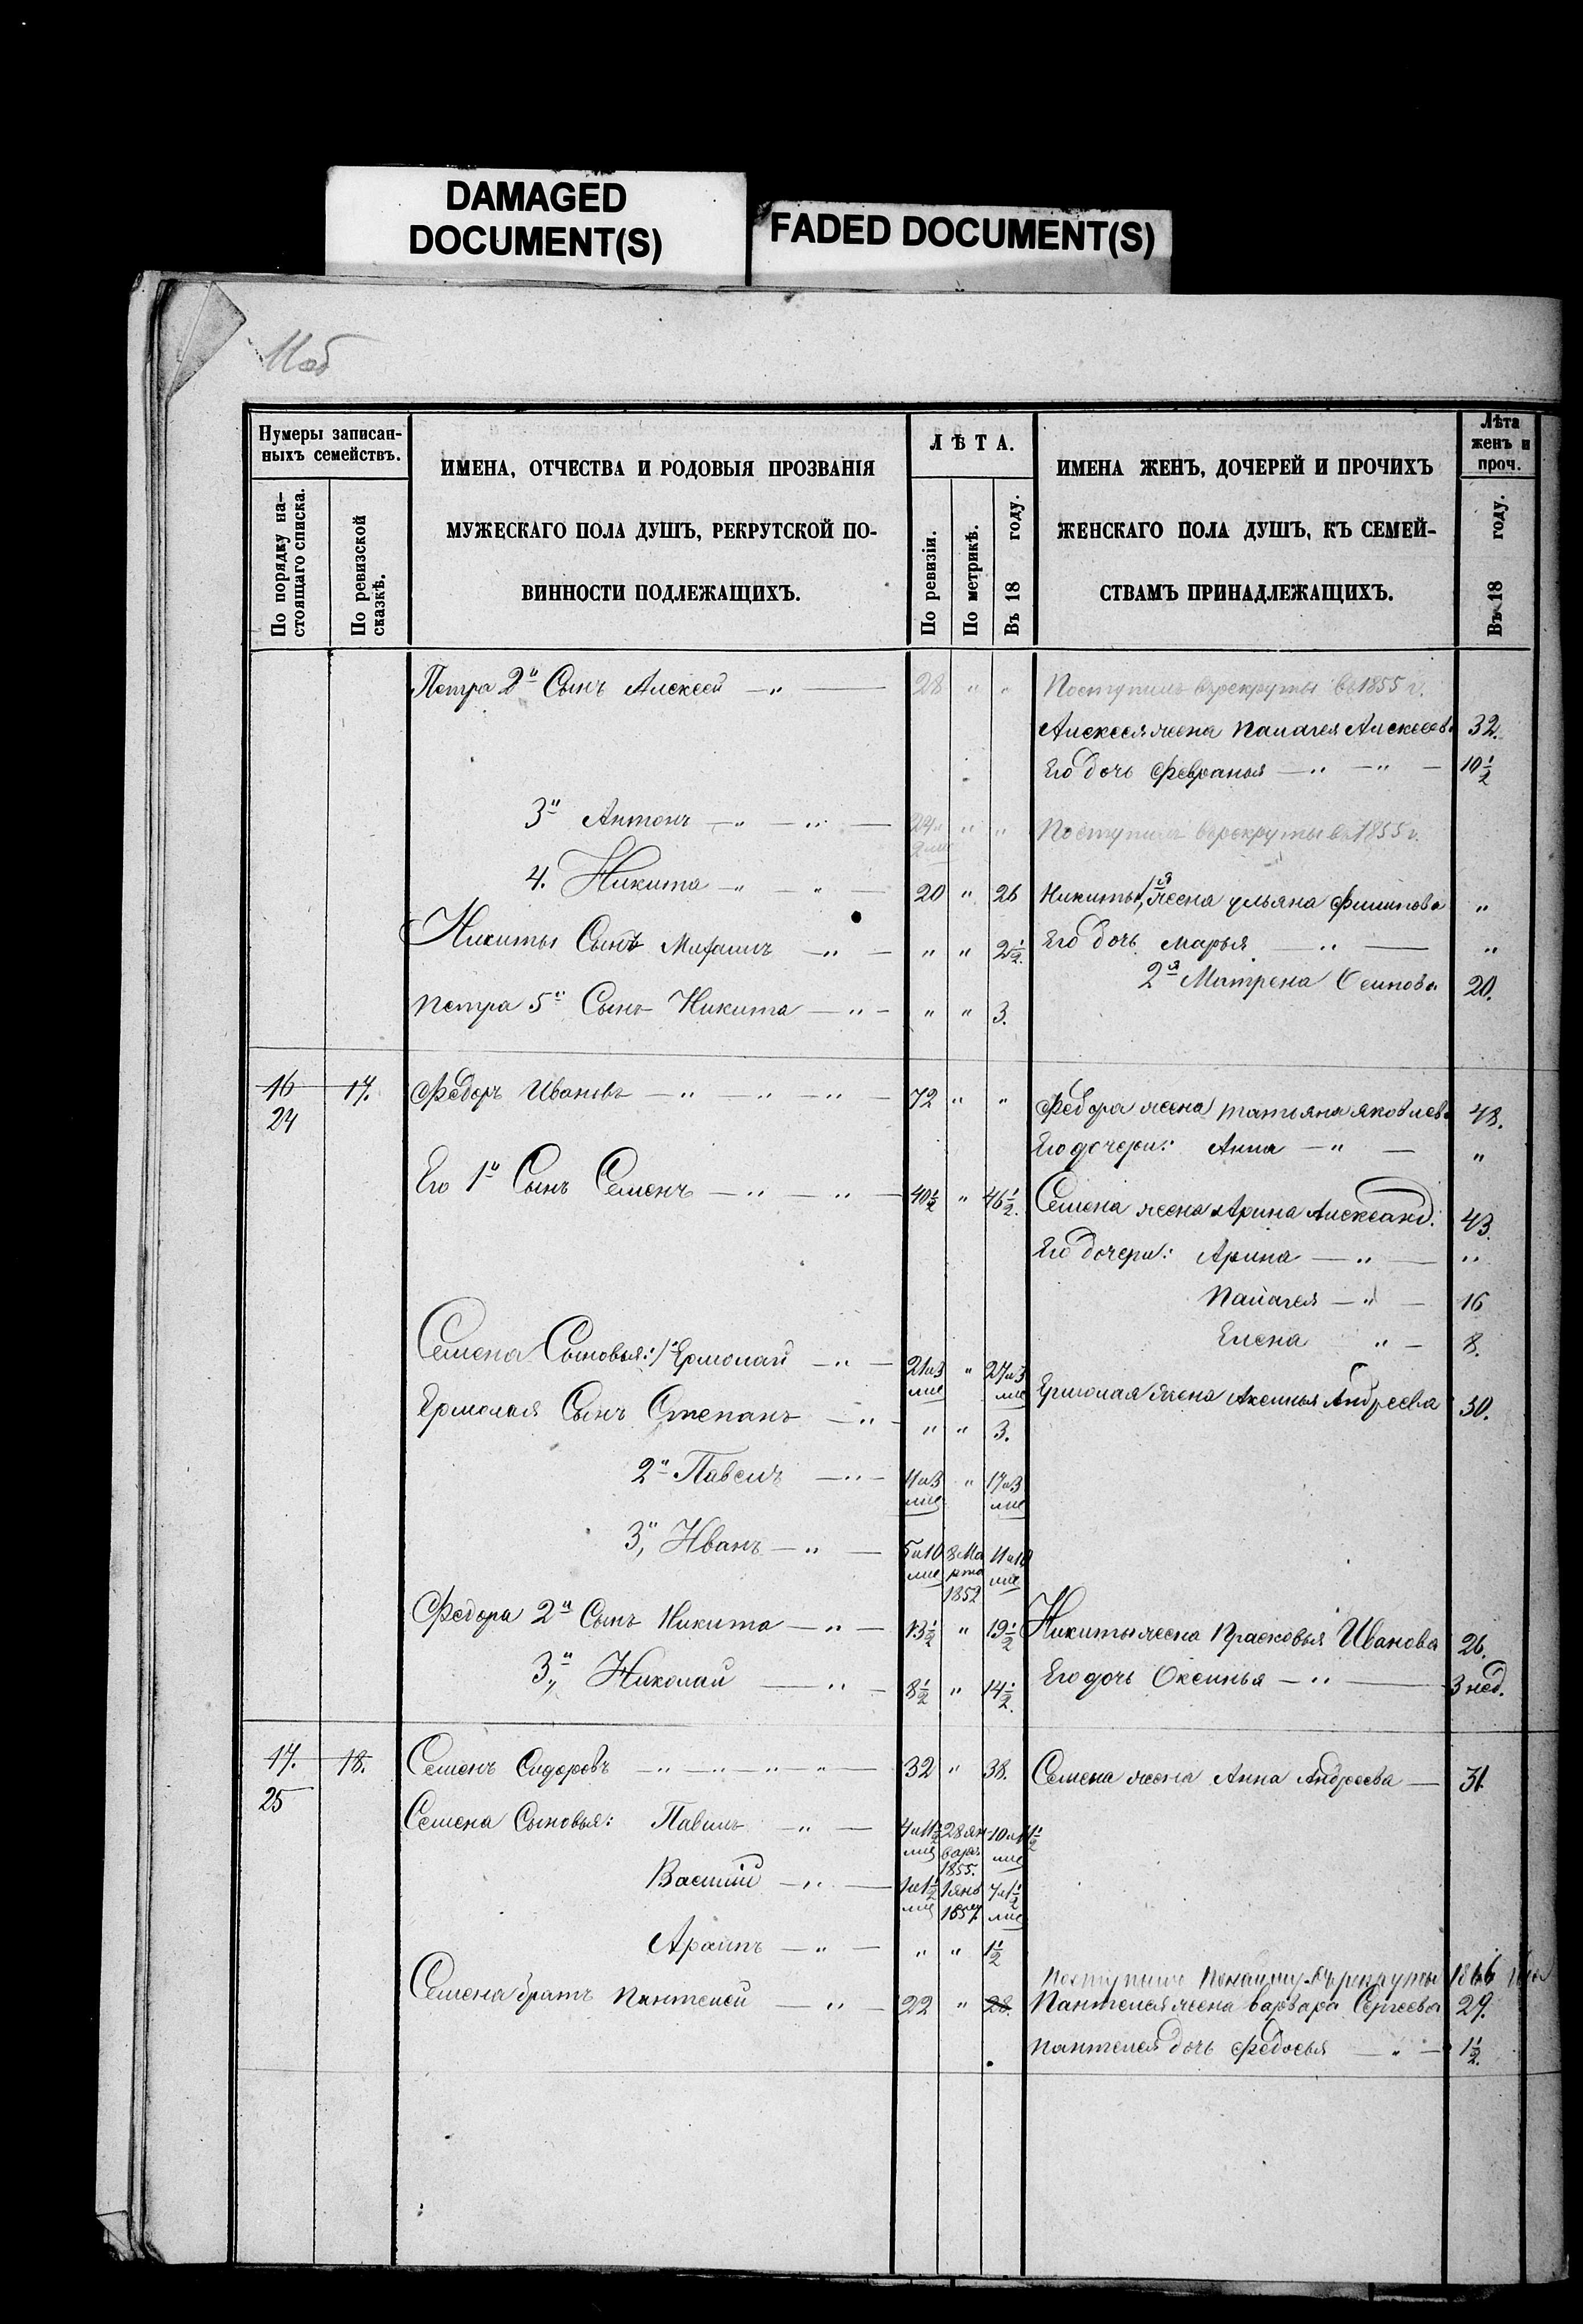 DAMAGED
DOCUMENT(S)
FADED DOCUMENT(S)
11об
Нумеры записан-
ныхъ семействъ.
По порядку на-
стоящаго списка.
По ревизской
сказкѣ.
ИМЕНА, ОТЧЕСТВА И РОДОВЫЯ ПРОЗВАНІЯ
МУЖЕСКАГО ПОЛА ДУШЪ, РЕКРУТСКОЙ ПО-
ВИННОСТИ ПОДЛЕЖАЩИХЪ.
ЛѢТА.
По ревизіи.
По метрикѣ.
Въ 18 году.
ИМЕНА ЖЕНЪ, ДОЧЕРЕЙ И ПРОЧИХЪ
ЖЕНСКАГО ПОЛА ДУШЪ, КЪ СЕМЕЙ-
СТВАМЪ ПРИНАДЛЕЖАЩИХЪ.
Лѣта
женъ и
проч.
Въ 18 году.
Петра 2й Сынъ Алексей — " — 28 " " Поступилъ врекруты въ 1855 г.
Алексея жена Палагея Алексеева 32.
Его дочь Февранья — " — " — 10 1/2
3й Антонъ — " — " — 24 и 2 мце " " Поступилъ врекруты въ 1855 г.
4. Никита — " — " — 20 " 26 Никиты 1я жена ульяна Филипова "
Никиты Сынъ Михаилъ — " — " " 2 1/2. Его дочь марья " — "
2я Матрена Осипова 20.
Петра 5й Сынъ Никита — " — " " 3.
16 17. Федоръ Ивановъ — " — " — " — 72 " " Федора жена татьяна яковлев. 48.
24
Его дочери: Анна — " — "
Его 1й Сынъ Семенъ — " — " — 40 1/2 " 46 1/2. Семена жена Арина Александ. 43.
Его дочери: Арина — " — "
Палагея — " — 16
Елена " — 8.
Семена Сыновья: 1й Ермолай — " — 21 и 3 мце " 27 и 3 мце Ермолая жена Аксинья Андреева 30.
Ермолая Сынъ Степанъ — " — " " 3.
2й Павелъ — " — 11 и 3 мце " 17 и 3 мце
3й, Иванъ — " — 5 и 10 мце 8 Марта 1852 11 и 10 мце
Федора 2й Сынъ Никита — " — 13 1/2 " 19 1/2 Никиты жена Прасковья Иванова 26.
3й, Николай — " — 8 1/2 " 14 1/2. Его дочь Оксинья — " — 3 нед.
17. 18. Семенъ Сидоровъ — " — " — " — " — 32 " 38. Семена жена Анна Андреева — 31
25
Семена Сыновья: Павелъ — " — 4 и 11 1/2 мце 28 января 1855. 10 и 11 1/2 мце
Василій — " — 1 и 1 1/2 мце 1 янв 1857 7 и 1 1/2 мце
Архипъ — " — " " 1 1/2
Поступилъ Понайму въ рекруты 1866
Семена братъ Пантелей — " — 22 " 28. Пантелея жена варвара Сергеева 29.
Пантелея дочь Федосья — " — 1 1/2.